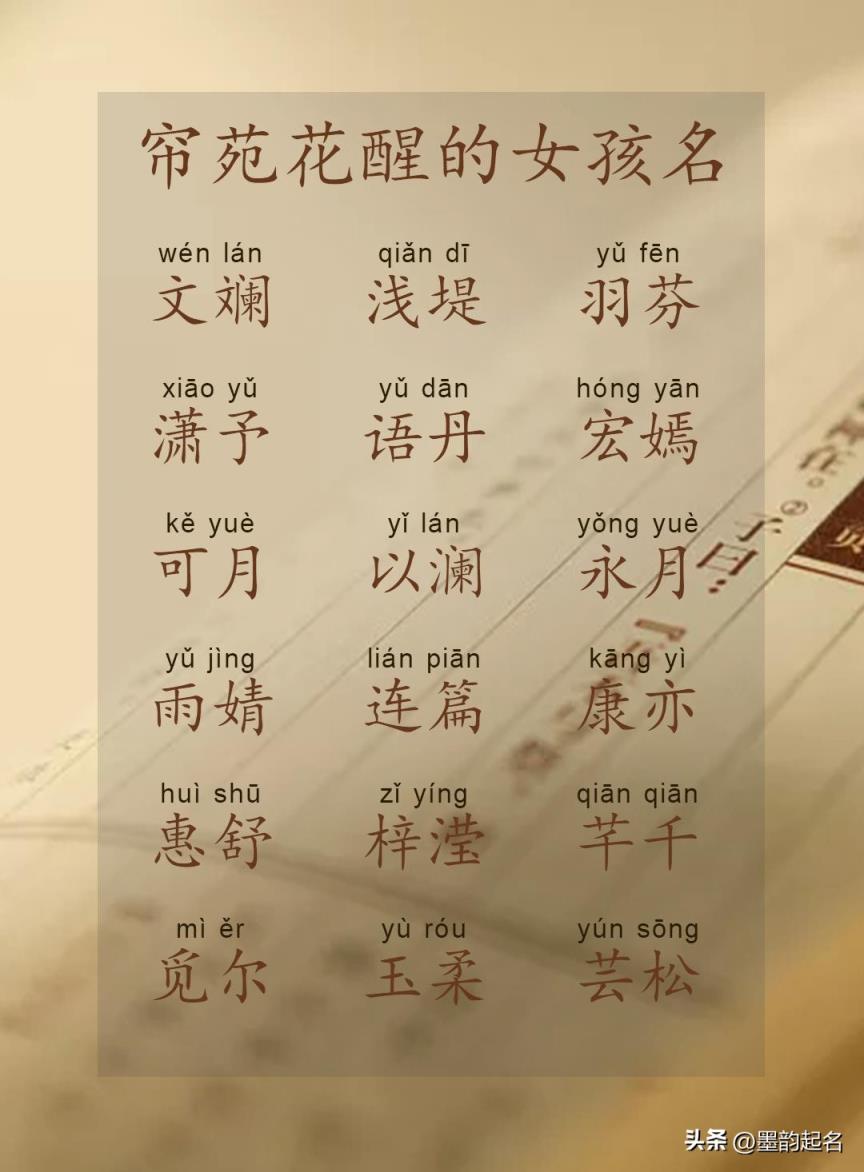 帘苑花醒的女孩名
wén lán qiǎn dī yǔ fēn
文斓 浅堤 羽芬
xiāo yǔ yǔ dān hóng yān
潇予 语丹 宏嫣
kě yuè yǐ lán yǒng yuè
可月 以澜 永月
yǔ jìng lián piān kāng yì
雨婧 连篇 康亦
huì shū zǐ yíng qiān qiān
惠舒 梓滢 芊千
mì ěr yù róu yún sōng
觅尔 玉柔 芸松
子曰：
头条 @墨韵起名